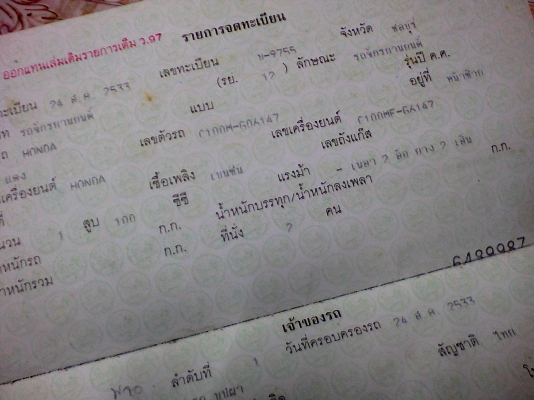 ออกแทนเล่มเดิมรายการเดิม ว.97 รายการจดทะเบียน
ทะเบียน 24 ส.ค. 2533 เลขทะเบียน 9755 จังหวัด ชลบุรี
รถจักรยานยนต์ (รย. 12 ) ลักษณะ รถจักรยานยนต์
รถ HONDA แบบ รุ่นปี ค.ศ.
แดง เลขตัวรถ C100M-GOA147 อยู่ที่
เครื่องยนต์ HONDA เชื้อเพลิง เบนซิน เลขเครื่องยนต์ C100ME-GOA147
ที่ ซีซี เลขถังแก๊ส
จำนวน 1 สูบ 100 แรงม้า - เพลา 2 ล้อ ยาง 2 เส้น
น้ำหนักรถ ก.ก. น้ำหนักบรรทุก/น้ำหนักลงเพลา ก.ก.
น้ำหนักรวม ก.ก. ที่นั่ง 2 คน
6489987
เจ้าของรถ
ลำดับที่ 1 วันที่ครอบครองรถ 24 ส.ค. 2533
สัญชาติ ไทย